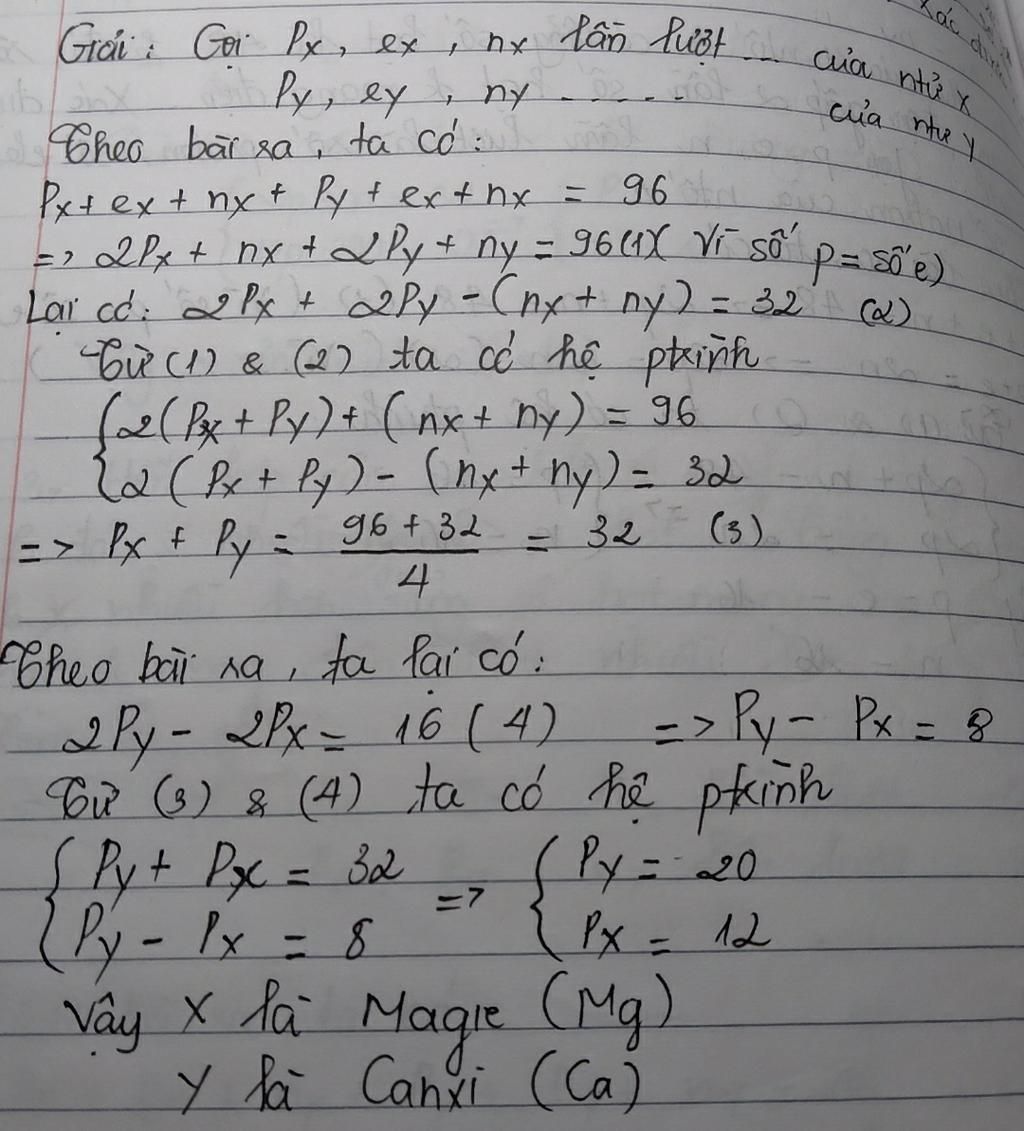 Xác định
Giải: Gọi Px, ex, nx lần lượt ... của ntử X
Py, ey, ny ...... của ntử Y
Theo bài ra, ta có:
Px + ex + nx + Py + ex + nx = 96
=> 2Px + nx + 2Py + ny = 96 (1) ( Vì số p = số e)
Lại có: 2Px + 2Py - (nx + ny) = 32 (2)
Từ (1) & (2) ta có hệ ptrình
{ 2(Px + Py) + (nx + ny) = 96
2(Px + Py) - (nx + ny) = 32
=> Px + Py = (96 + 32)/4 = 32 (3)
Theo bài ra, ta lại có:
2Py - 2Px = 16 (4) => Py - Px = 8
Từ (3) & (4) ta có hệ ptrình
{ Py + Px = 32 => { Py = 20
Py - Px = 8 Px = 12
Vậy X là Magie (Mg)
Y là Canxi (Ca)